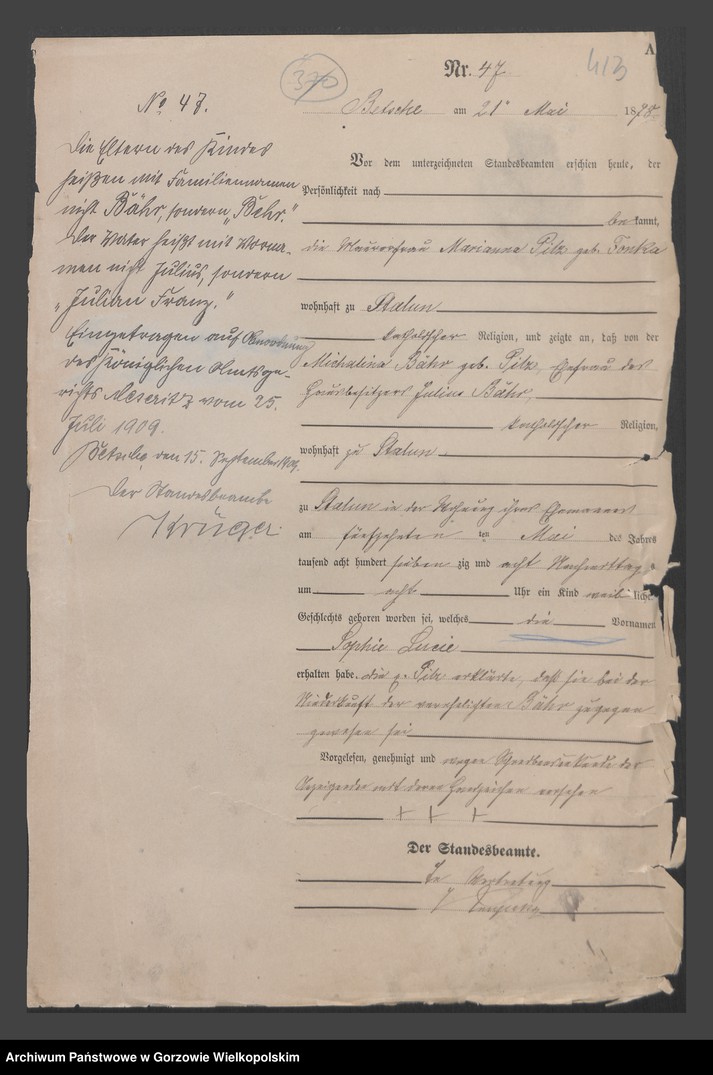 A
Nr. 47.
370
413
Betsche am 21ⁿ Mai 1878.
Vor dem unterzeichneten Standesbeamten erschien heute, der
Persönlichkeit nach
be kannt,
die Maurerfrau Marianna Pilz geb. Tonka
wohnhaft zu Stalun
katholischer Religion, und zeigte an, daß von der
Michalina Bähr geb. Pilz, Ehefrau des
Hausbesitzers Julius Bähr,
katholischer Religion,
wohnhaft zu Stalun
zu Stalun in der Wohnung ihres Ehemannes
am fünfzehnten ten Mai des Jahres
tausend acht hundert sieben zig und acht Nachmittags
um acht Uhr ein Kind weib liches
Geschlechts geboren worden sei, welches die Vornamen
Sophie Lucie
erhalten habe. die p. Pilz erklärte, daß sie bei der
Niederkunft der verehelichten Bähr zugegen
gewesen sei
Vorgelesen, genehmigt und wegen Schreibensunkunde der
Anzeigenden mit deren Handzeichen versehen
+ + +
Der Standesbeamte.
In Vertretung
No 47.
Die Eltern des Kindes
heißen mit Familiennamen
nicht Bähr, sondern "Behr."
Der Vater heißt mit Vorna-
men nicht Julius, sondern
"Julian Franz."
Eingetragen auf Anordnung
des Königlichen Amtsge-
richts Meseritz vom 25.
Juli 1909.
Betsche, den 15. September 1909.
Der Standesbeamte
Krüger.
Archiwum Państwowe w Gorzowie Wielkopolskim